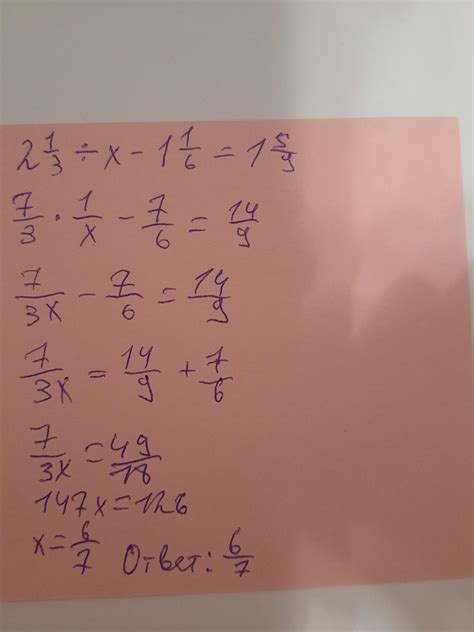 2 1/3 ÷ x - 1 1/6 = 1 5/9
7/3 · 1/x - 7/6 = 14/9
7/3x - 7/6 = 14/9
7/3x = 14/9 + 7/6
7/3x = 49/18
147x = 126
x = 6/7 Ответ: 6/7